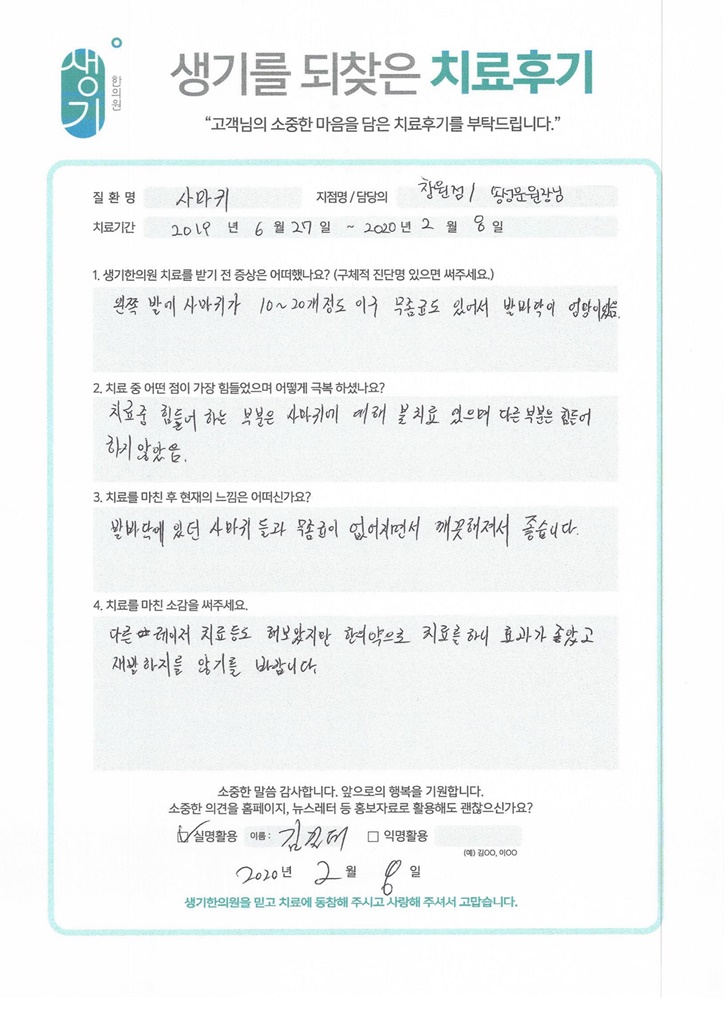 생기
한의원
생기를 되찾은 치료후기
“고객님의 소중한 마음을 담은 치료후기를 부탁드립니다.”
질 환 명 사마귀 지점명 / 담당의 창원점 / 송성문원장님
치료기간 2019 년 6 월 27 일 ~ 2020 년 2 월 8 일
1. 생기한의원 치료를 받기 전 증상은 어떠했나요? (구체적 진단명 있으면 써주세요.)
왼쪽 발에 사마귀가 10~20개정도 이구 무좀균도 있어서 발바닥이 엉망이였음.
2. 치료 중 어떤 점이 가장 힘들었으며 어떻게 극복 하셨나요?
치료중 힘들어 하는 부분은 사마귀에 대해 불치료 였으며 다른 부분은 힘들어
하지 않았음.
3. 치료를 마친 후 현재의 느낌은 어떠신가요?
발바닥에 있던 사마귀 들과 무좀균이 없어지면서 깨끗해져서 좋습니다.
4. 치료를 마친 소감을 써주세요.
다른 레이저 치료등도 해보았지만 한의약으로 치료를 하니 효과가 좋았고
재발하지를 않기를 바랍니다.
소중한 말씀 감사합니다. 앞으로의 행복을 기원합니다.
소중한 의견을 홈페이지, 뉴스레터 등 홍보자료로 활용해도 괜찮으신가요?
실명활용 이름 : 익명활용
(예) 김OO, 이OO
2020 년 2 월 8 일
생기한의원을 믿고 치료에 동참해 주시고 사랑해 주셔서 고맙습니다.